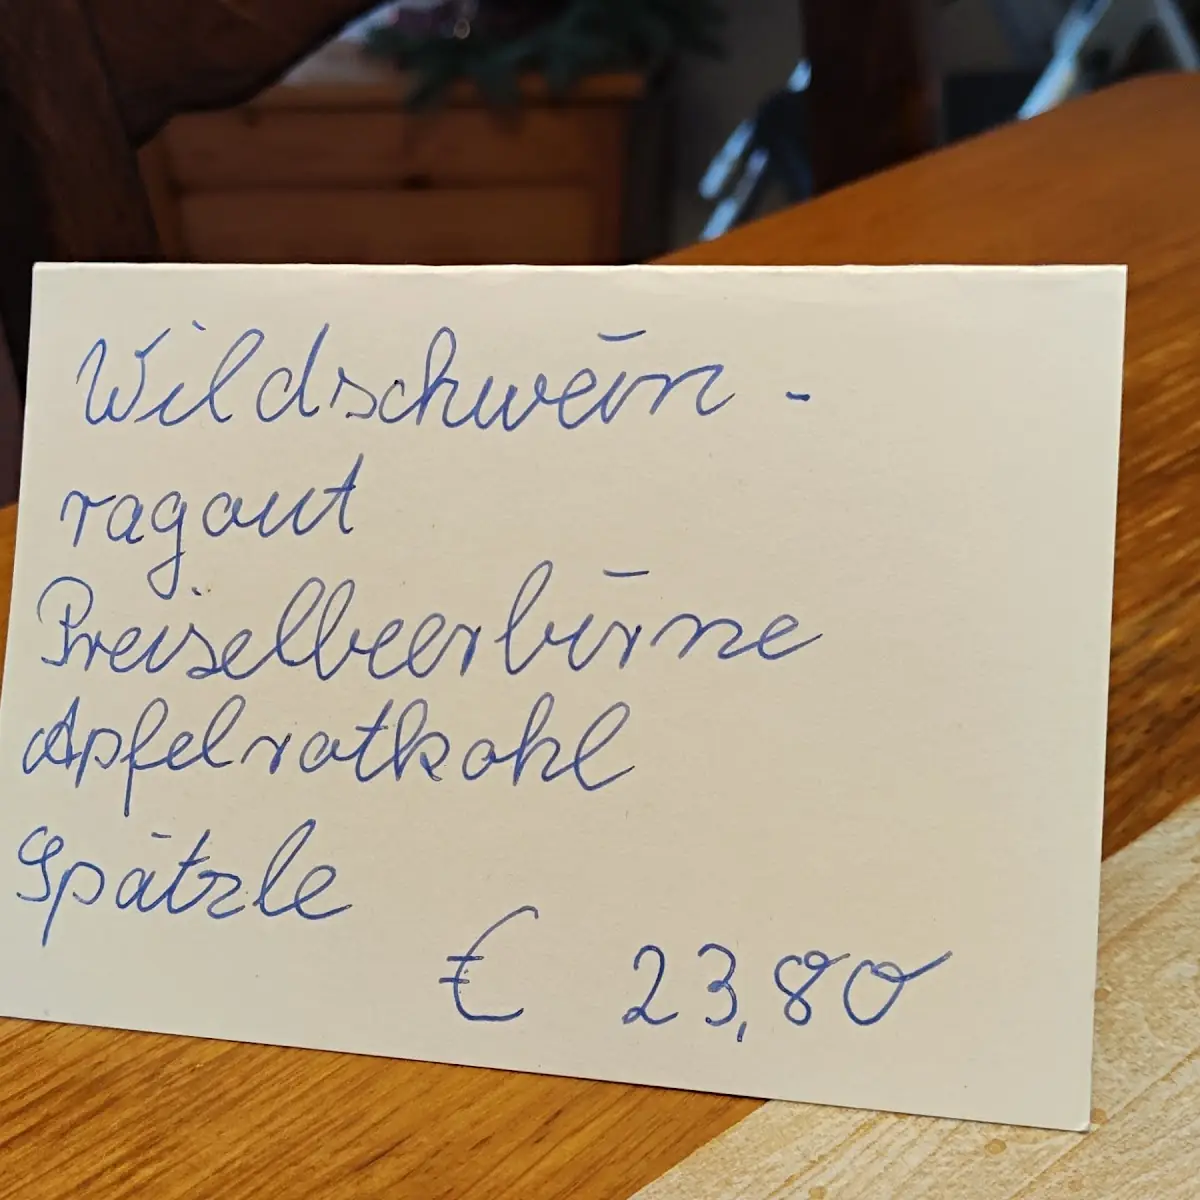 Wildschwein -
ragout
Preiselbeerbirne
Apfelrotkohl
Spätzle
€ 23,80